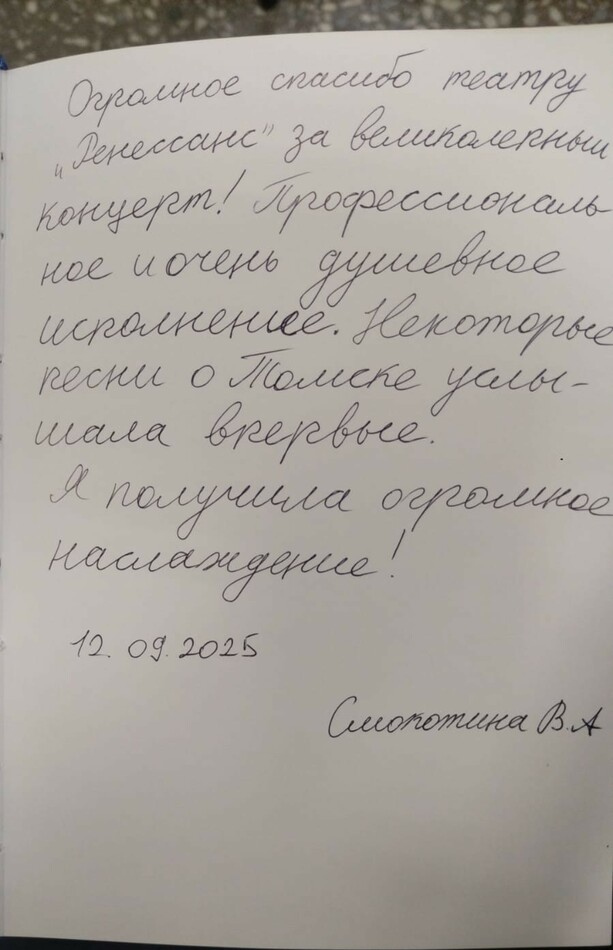 Огромное спасибо театру
„Ренессанс" за великолепный
концерт! Профессиональ-
ное и очень душевное
исполнение. Некоторые
песни о Томске услы-
шала впервые.
Я получила огромное
наслаждение!
12.09.2025
Смокотина В.А